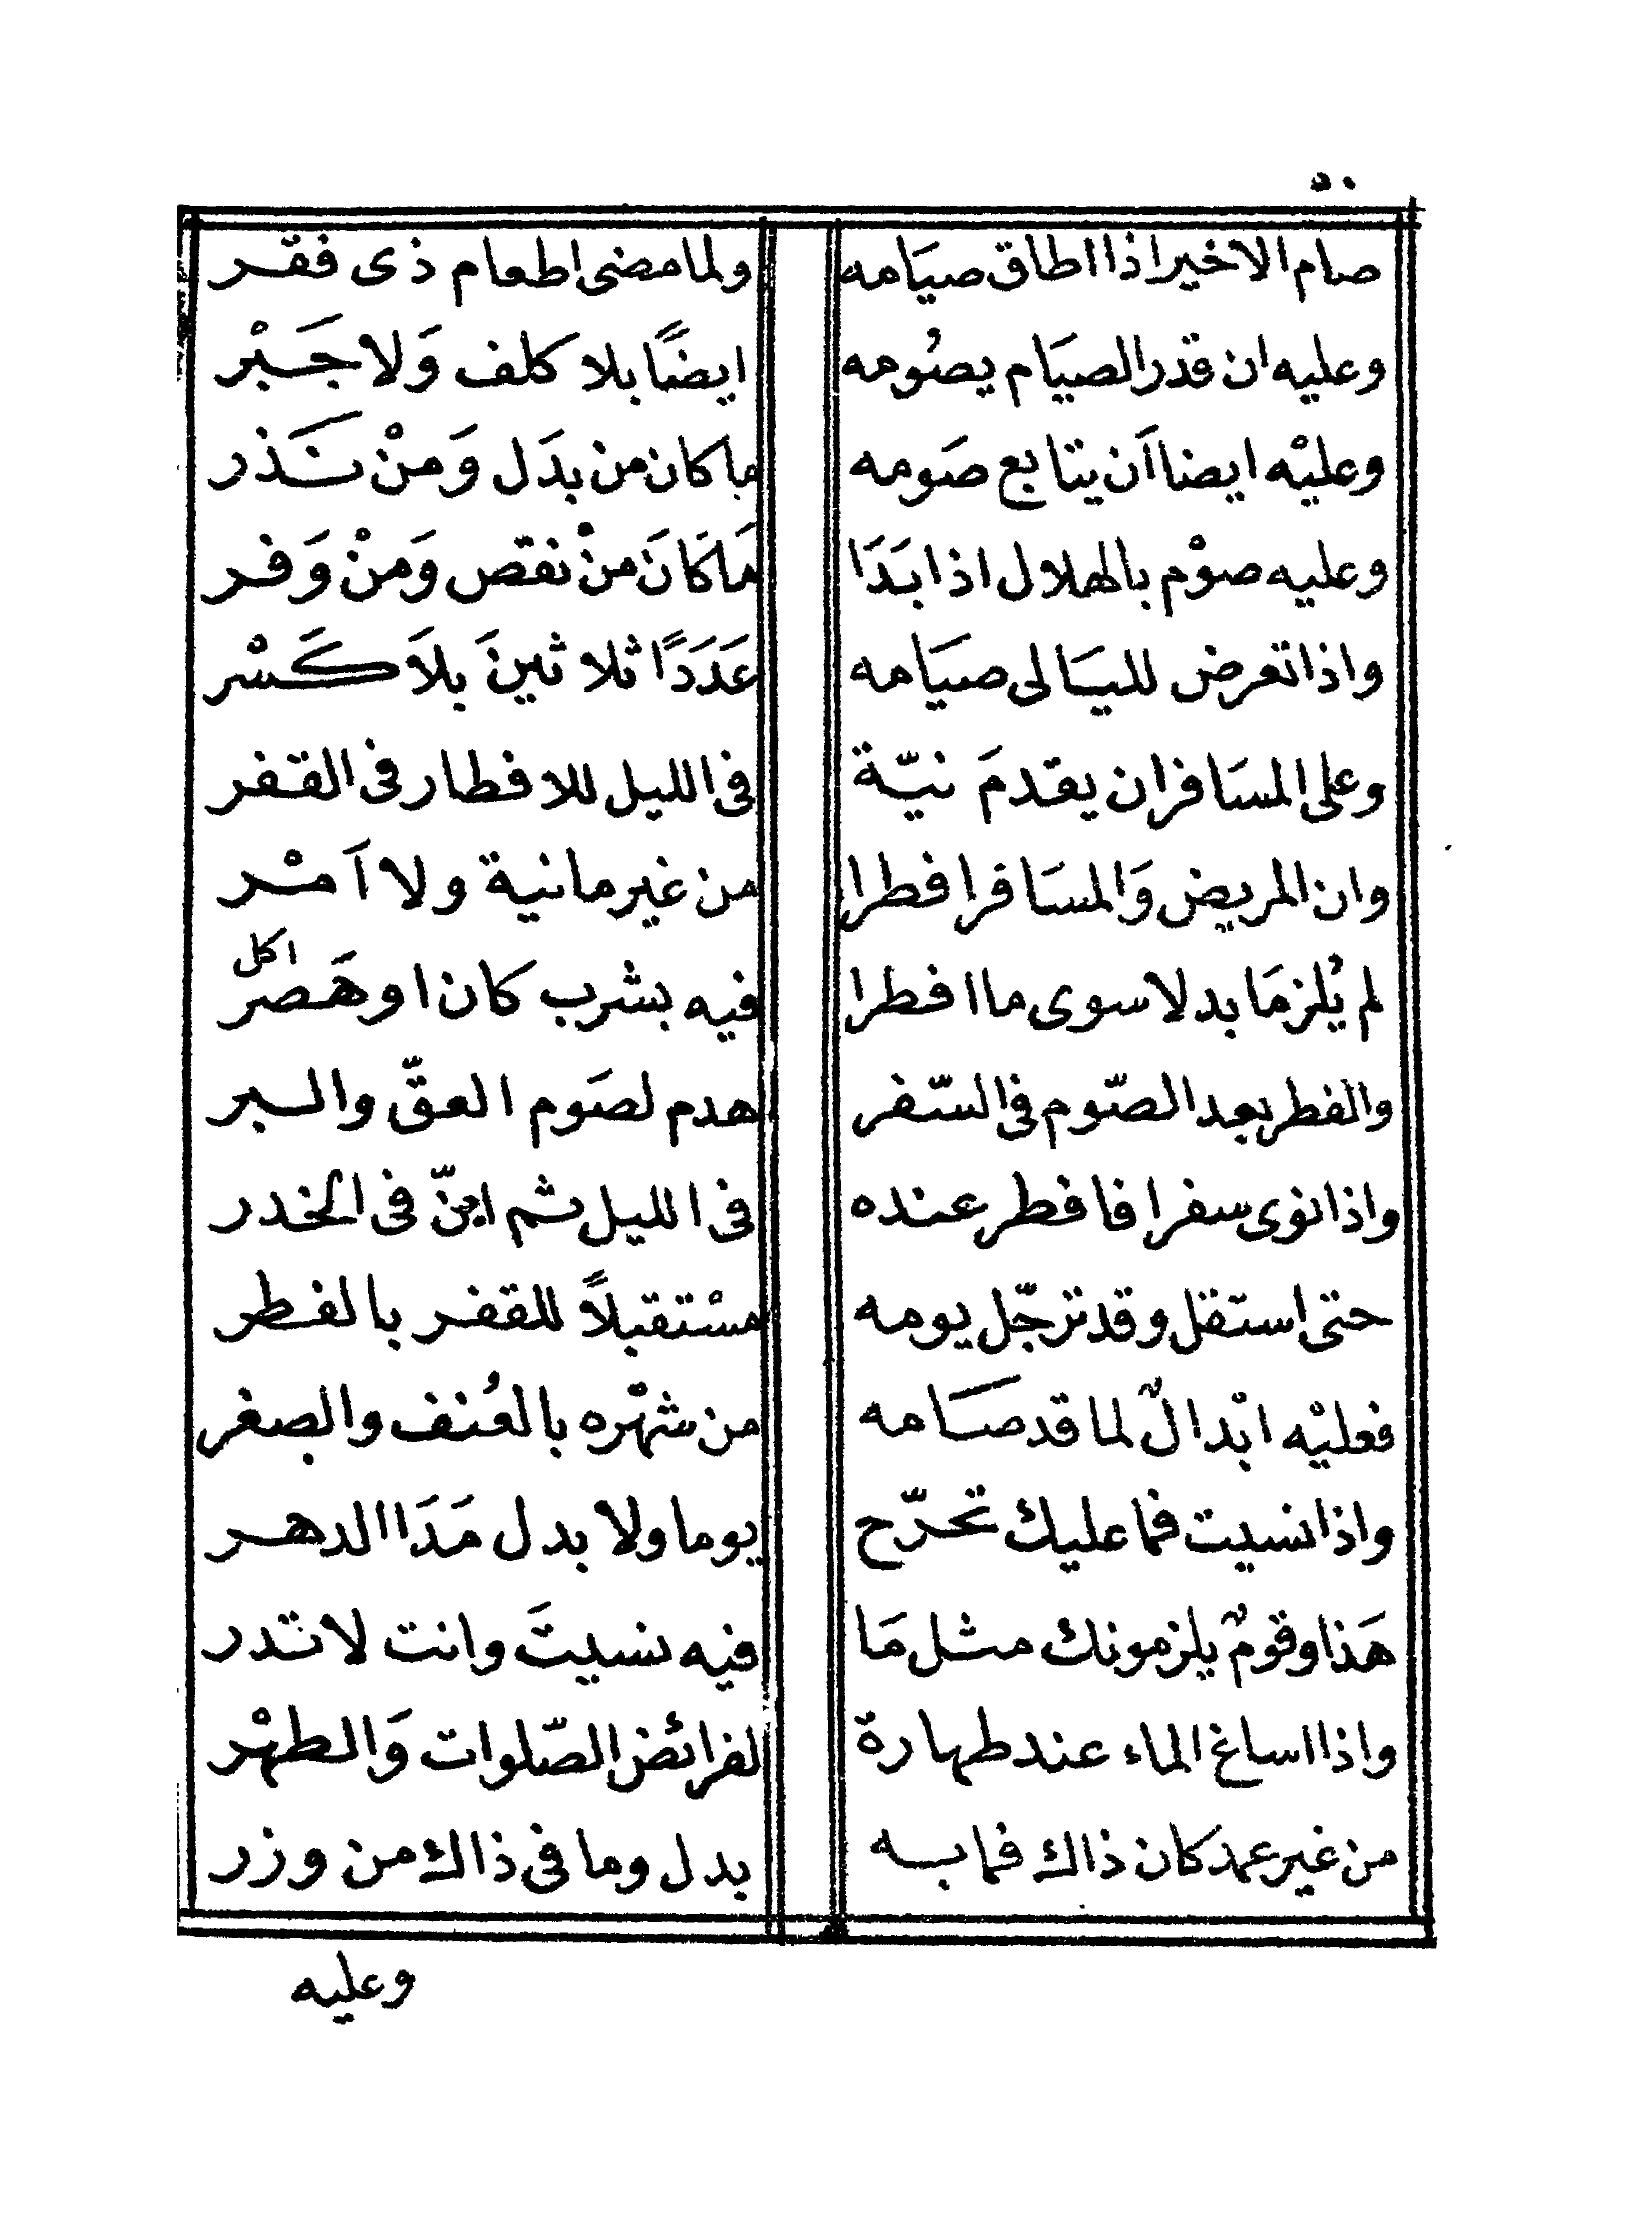 صام الاخير اذا اطاق صيَامه ولما مضى اطعام ذى فقر
وعليه ان قدر الصيَام يصُومه ايضًا بلا كلف وَلا جَبْر
وعليْه ايضا اَن يتابع صَومه ما كان من بدَل وَمنْ نَذر
وعليه صوْم بالهلال اذا بَدَا مَا كَانَ منْ نقص وَمنْ وَفر
واذا تعرض لليَالى صيَامه عَدَدًا ثلاثينَ بلاَ كَسْر
وعلى المسَافر ان يقدمَ نيّة فى الليل للافطار فى القفر
وان المريض وَالمسَافر افطرا من غير ما نية ولا اَمْر
لم يُلزمَا بدلا سوى ما افطرا فيه بشرب كان او هَصر اكل
والفطر بعد الصّوم فى السّفر هدم لصَوم العقّ والبر
واذا نوى سفرا فافطر عنده فى الليل ثم ابنّ فى الخدر
حتى استقل وقد ترجّل يومه مسْتقبلاً للقفر بالفطر
فعليْه ابْدالٌ لما قد صَامه من شهْره بالعُنف والصغر
واذا نسيت فما عليك تحرّج يوما ولا بدل مَدَا الدهر
هَذا وقومٌ يلزمونك مثل مَا فيه نسيتَ وانت لا تدر
واذا اساغ الماء عند طهارة لفرائض الصّلوات وَالطهْر
من غير عمد كان ذاك فما به بدل وما فى ذاك من وزر
وعليه